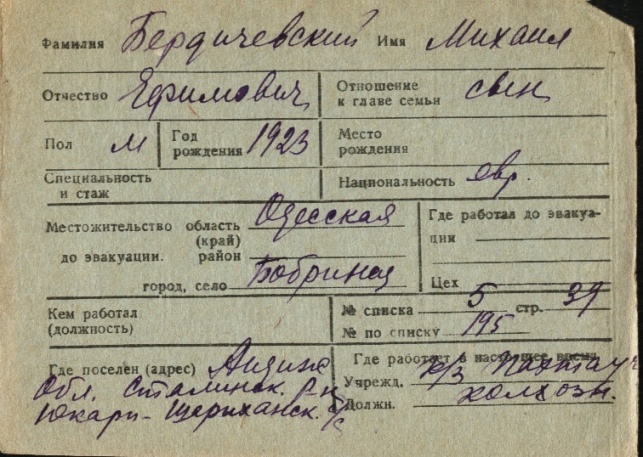 Фамилия Бердичевский Имя Михаил
Отчество Ефимович Отношение к главе семьи сын
Пол м Год рождения 1923 Место рождения
Специальность и стаж Национальность евр.
Местожительство область (край) Одесская Где работал до эвакуации
до эвакуации. район
город, село Бобринец Цех
Кем работал (должность) № списка 5 стр. 39
№ по списку 195
Где поселен (адрес) Андиж Где работает в настоящее время к/з
Обл. Сталинск. р-н Учрежд.
Юкари-Шериханск. с/с Должн. колхозн.